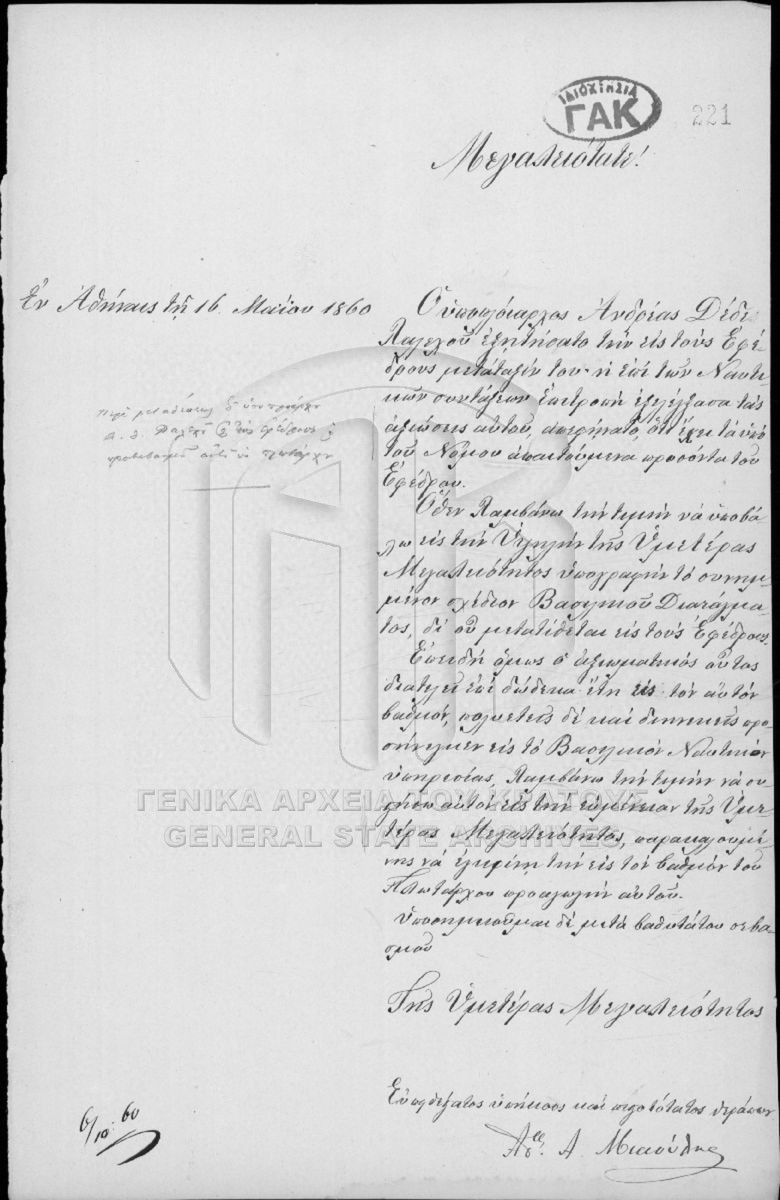 ΙΔΙΟΚΤΗΣΙΑ
ΓΑΚ
221
Μεγαλειότατε!
Ἐν Ἀθήναις τῇ 16 Μαΐου 1860
Ὁ ὑποπλοίαρχος Ἀνδρέας Δέδε
ἐξητήσατο τὴν εἰς τοὺς Ἐφέ-
δρους μετάταξίν του· ἡ ἐπὶ τῶν Ναυτι-
κῶν συντάξεων Ἐπιτροπὴ ἐξελέγξασα τὰς
ἀξιώσεις αὐτοῦ, ἀπεφήνατο, ὅτι ἔχει τὰ ὑπὸ
τοῦ Νόμου ἀπαιτούμενα προσόντα τοῦ
Ἐφέδρου.
Ὅθεν λαμβάνω τὴν τιμὴν νὰ ὑποβά-
λω εἰς τὴν Ὑψηλὴν τῆς Ὑμετέρας
Μεγαλειότητος ὑπογραφὴν τὸ συνημ-
μένον σχέδιον Βασιλικοῦ Διατάγμα-
τος, δι' οὗ μετατίθεται εἰς τοὺς Ἐφέδρους.
Ἐπειδὴ ὅμως ὁ ἀξιωματικὸς οὗτος
διατελεῖ ἐπὶ δώδεκα ἔτη εἰς τὸν αὐτὸν
βαθμόν, πολυετεῖς δὲ καὶ διηνεκεῖς προ-
σήνεγκεν εἰς τὸ Βασιλικὸν Ναυτικὸν
ὑπηρεσίας, λαμβάνω τὴν τιμὴν νὰ συ-
στήσω αὐτὸν εἰς τὴν εὐμένειαν τῆς Ὑμε-
τέρας Μεγαλειότητος, παρακαλουμέ-
νης νὰ ἐγκρίνῃ τὴν εἰς τὸν βαθμὸν τοῦ
Πλωτάρχου προαγωγὴν αὐτοῦ.
Ὑποσημειοῦμαι δὲ μετὰ βαθυτάτου σεβα-
σμοῦ
Τῆς Ὑμετέρας Μεγαλειότητος
Εὐπειθέστατος ὑπήκοος καὶ πιστότατος θεράπων
Α. Μιαούλης
6/10 60
ΓΕΝΙΚΑ ΑΡΧΕΙΑ ΤΟΥ ΚΡΑΤΟΥΣ
GENERAL STATE ARCHIVES